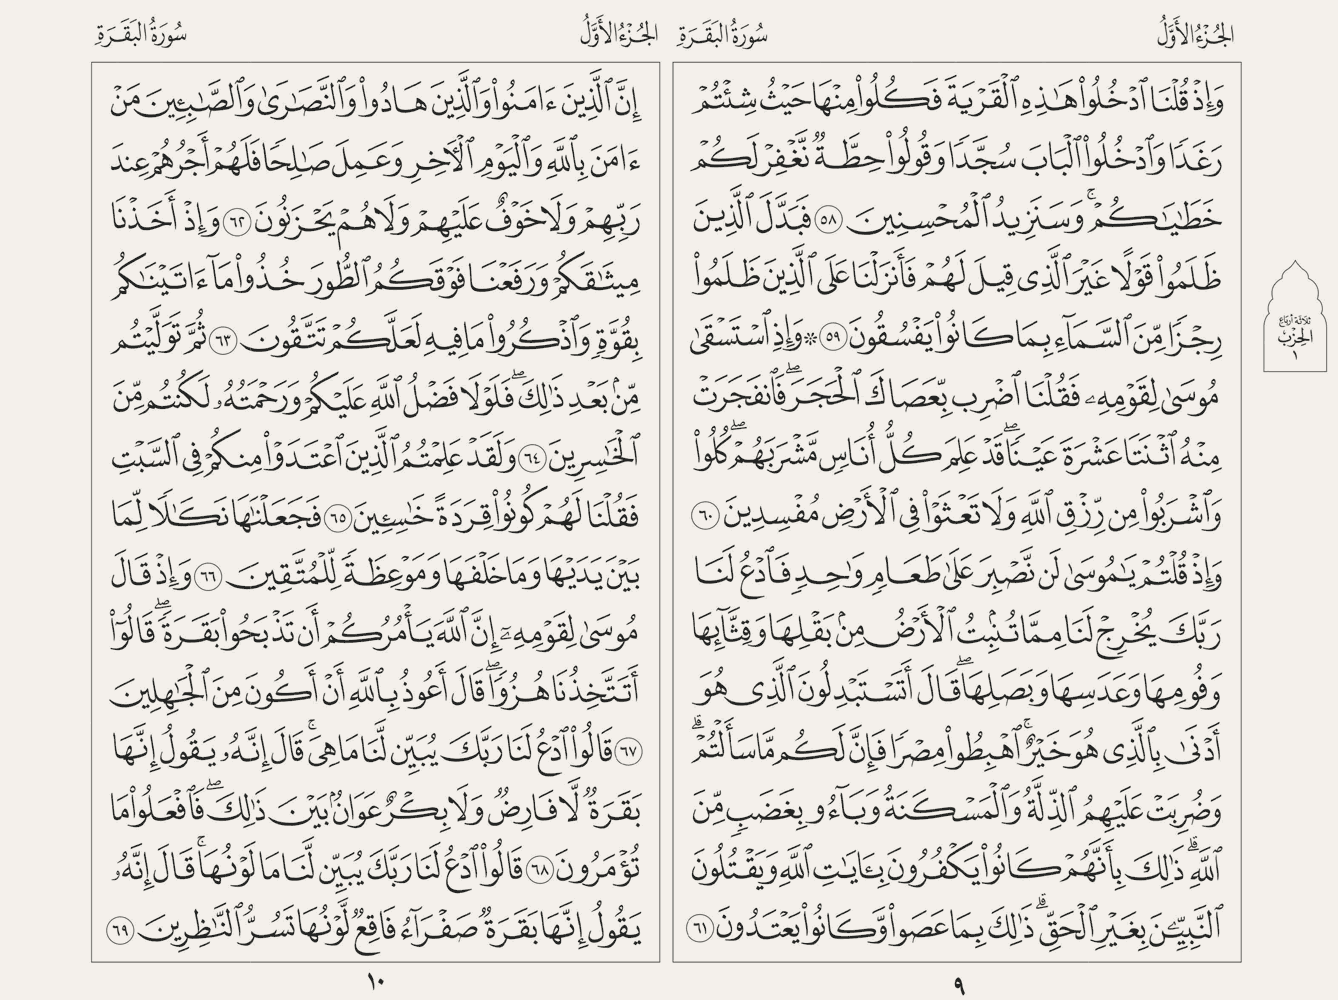 الجُزْءُ الأَوَّلُ
سُورَةُ البَقَرَةِ
وَإِذْ قُلْنَا ٱدْخُلُواْ هَـٰذِهِ ٱلْقَرْيَةَ فَكُلُواْ مِنْهَا حَيْثُ شِئْتُمْ
رَغَدًا وَٱدْخُلُواْ ٱلْبَابَ سُجَّدًا وَقُولُواْ حِطَّةٌ نَّغْفِرْ لَكُمْ
خَطَـٰيَـٰكُمْۚ وَسَنَزِيدُ ٱلْمُحْسِنِينَ ٥٨ فَبَدَّلَ ٱلَّذِينَ
ظَلَمُواْ قَوْلًا غَيْرَ ٱلَّذِى قِيلَ لَهُمْ فَأَنزَلْنَا عَلَى ٱلَّذِينَ ظَلَمُواْ
رِجْزًا مِّنَ ٱلسَّمَآءِ بِمَا كَانُواْ يَفْسُقُونَ ٥٩ ۞ وَإِذِ ٱسْتَسْقَىٰ
مُوسَىٰ لِقَوْمِهِۦ فَقُلْنَا ٱضْرِب بِّعَصَاكَ ٱلْحَجَرَۖ فَٱنفَجَرَتْ
مِنْهُ ٱثْنَتَا عَشْرَةَ عَيْنًاۖ قَدْ عَلِمَ كُلُّ أُنَاسٍ مَّشْرَبَهُمْۖ كُلُواْ
وَٱشْرَبُواْ مِن رِّزْقِ ٱللَّهِ وَلَا تَعْثَوْاْ فِى ٱلْأَرْضِ مُفْسِدِينَ ٦٠
وَإِذْ قُلْتُمْ يَـٰمُوسَىٰ لَن نَّصْبِرَ عَلَىٰ طَعَامٍ وَٰحِدٍ فَٱدْعُ لَنَا
رَبَّكَ يُخْرِجْ لَنَا مِمَّا تُنۢبِتُ ٱلْأَرْضُ مِنۢ بَقْلِهَا وَقِثَّآئِهَا
وَفُومِهَا وَعَدَسِهَا وَبَصَلِهَاۖ قَالَ أَتَسْتَبْدِلُونَ ٱلَّذِى هُوَ
أَدْنَىٰ بِٱلَّذِى هُوَ خَيْرٌۚ ٱهْبِطُواْ مِصْرًا فَإِنَّ لَكُم مَّا سَأَلْتُمْۗ
وَضُرِبَتْ عَلَيْهِمُ ٱلذِّلَّةُ وَٱلْمَسْكَنَةُ وَبَآءُو بِغَضَبٍ مِّنَ
ٱللَّهِۗ ذَٰلِكَ بِأَنَّهُمْ كَانُواْ يَكْفُرُونَ بِـَٔايَـٰتِ ٱللَّهِ وَيَقْتُلُونَ
ٱلنَّبِيِّـۧنَ بِغَيْرِ ٱلْحَقِّۗ ذَٰلِكَ بِمَا عَصَواْ وَّكَانُواْ يَعْتَدُونَ ٦١
٩
ثلاثة أرباع
الحِزْب
١
الجُزْءُ الأَوَّلُ
سُورَةُ البَقَرَةِ
إِنَّ ٱلَّذِينَ ءَامَنُواْ وَٱلَّذِينَ هَادُواْ وَٱلنَّصَـٰرَىٰ وَٱلصَّـٰبِـِٔينَ مَنْ
ءَامَنَ بِٱللَّهِ وَٱلْيَوْمِ ٱلْـَٔاخِرِ وَعَمِلَ صَـٰلِحًا فَلَهُمْ أَجْرُهُمْ عِندَ
رَبِّهِمْ وَلَا خَوْفٌ عَلَيْهِمْ وَلَا هُمْ يَحْزَنُونَ ٦٢ وَإِذْ أَخَذْنَا
مِيثَـٰقَكُمْ وَرَفَعْنَا فَوْقَكُمُ ٱلطُّورَ خُذُواْ مَآ ءَاتَيْنَـٰكُم
بِقُوَّةٍ وَٱذْكُرُواْ مَا فِيهِ لَعَلَّكُمْ تَتَّقُونَ ٦٣ ثُمَّ تَوَلَّيْتُم
مِّنۢ بَعْدِ ذَٰلِكَۖ فَلَوْلَا فَضْلُ ٱللَّهِ عَلَيْكُمْ وَرَحْمَتُهُۥ لَكُنتُم مِّنَ
ٱلْخَـٰسِرِينَ ٦٤ وَلَقَدْ عَلِمْتُمُ ٱلَّذِينَ ٱعْتَدَوْاْ مِنكُمْ فِى ٱلسَّبْتِ
فَقُلْنَا لَهُمْ كُونُواْ قِرَدَةً خَـٰسِـِٔينَ ٦٥ فَجَعَلْنَـٰهَا نَكَـٰلًا لِّمَا
بَيْنَ يَدَيْهَا وَمَا خَلْفَهَا وَمَوْعِظَةً لِّلْمُتَّقِينَ ٦٦ وَإِذْ قَالَ
مُوسَىٰ لِقَوْمِهِۦٓ إِنَّ ٱللَّهَ يَأْمُرُكُمْ أَن تَذْبَحُواْ بَقَرَةًۖ قَالُوٓاْ
أَتَتَّخِذُنَا هُزُوًاۖ قَالَ أَعُوذُ بِٱللَّهِ أَنْ أَكُونَ مِنَ ٱلْجَـٰهِلِينَ
٦٧ قَالُواْ ٱدْعُ لَنَا رَبَّكَ يُبَيِّن لَّنَا مَا هِىَۚ قَالَ إِنَّهُۥ يَقُولُ إِنَّهَا
بَقَرَةٌ لَّا فَارِضٌ وَلَا بِكْرٌ عَوَانٌۢ بَيْنَ ذَٰلِكَۖ فَٱفْعَلُواْ مَا
تُؤْمَرُونَ ٦٨ قَالُواْ ٱدْعُ لَنَا رَبَّكَ يُبَيِّن لَّنَا مَا لَوْنُهَاۚ قَالَ إِنَّهُۥ
يَقُولُ إِنَّهَا بَقَرَةٌ صَفْرَآءُ فَاقِعٌ لَّوْنُهَا تَسُرُّ ٱلنَّـٰظِرِينَ ٦٩
١٠